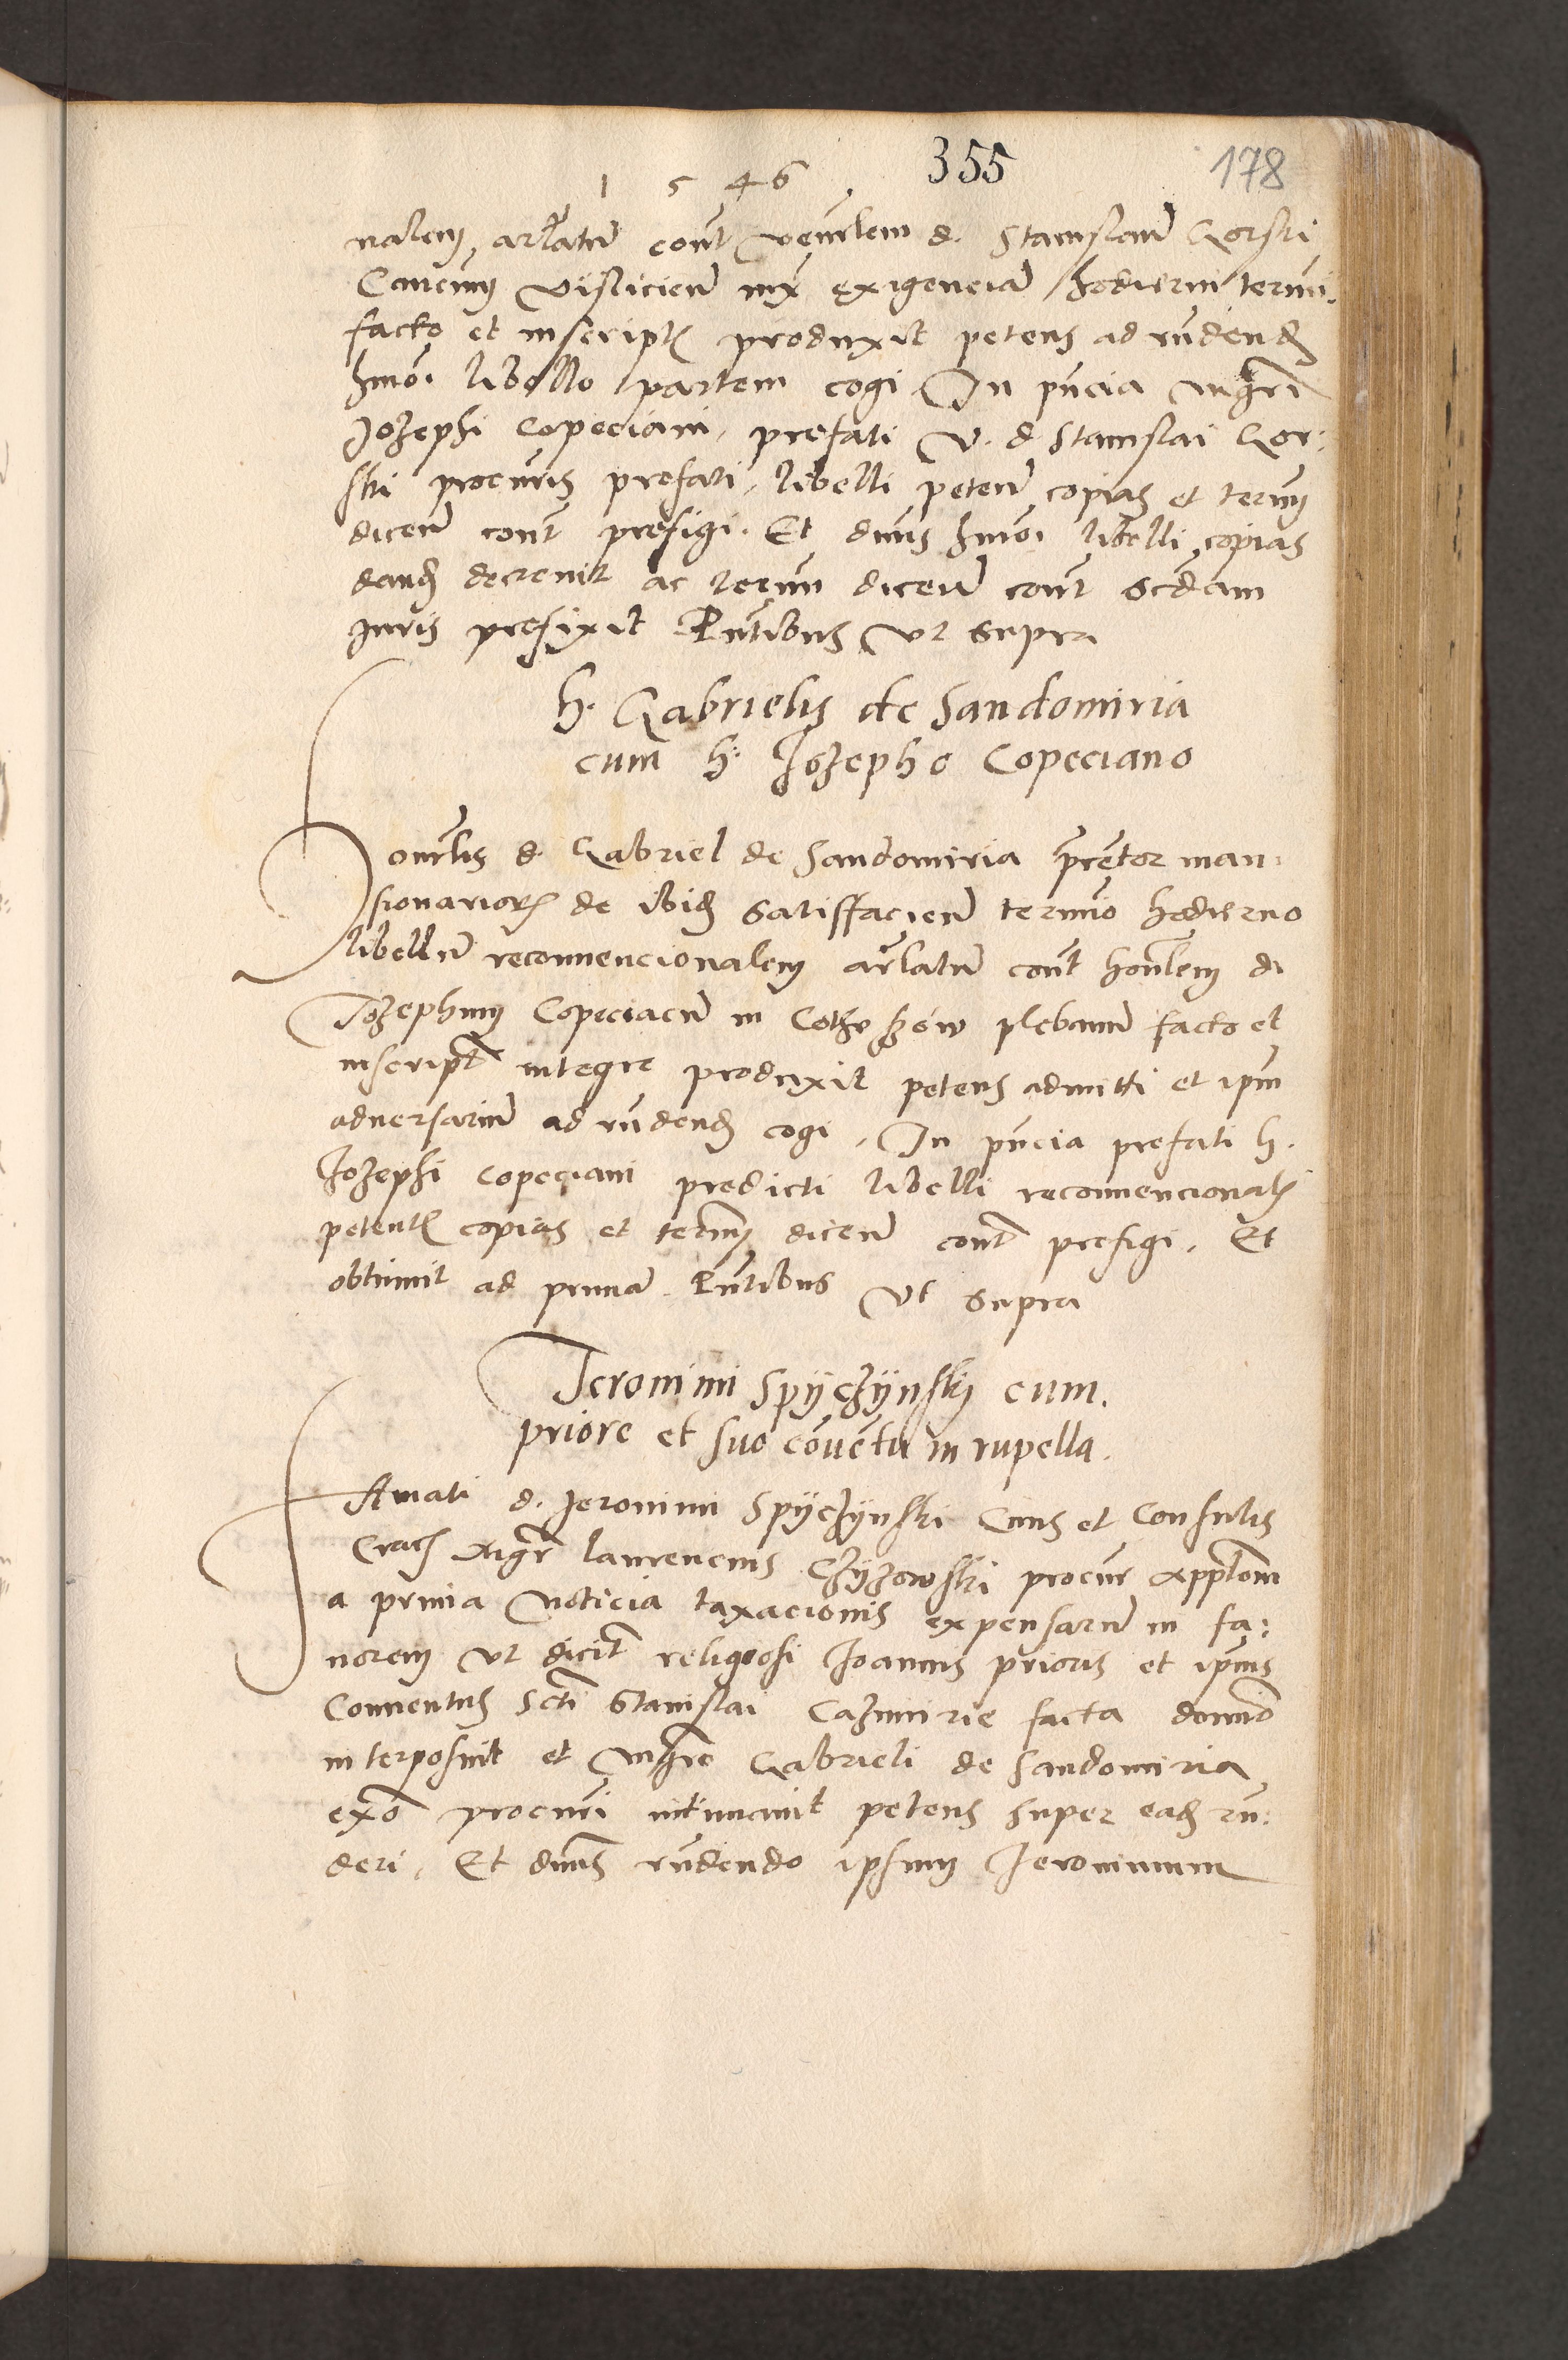 1546 355 178
nalem, arlatum cont venerlem d. Stanislaum Gorski
Canonicum visliciens iux exigenciam hodierni termi.
facto et inscriptis produxit petens ad rndend
hmoi libello partem cogi In pncia mgri
Jozephi Copeciani, prefati V. d Stanislai Gor:
ski procuris prefati, libelli peten copias et termum
dicen cont prefigi. Et dnus hmoi libelli copias
dand decrevit ac termum dicen cont scdam
juris prefixit Pntibus Vt supra
h. Gabrielis de Sandomiria
cum h. Jozepho Copeciano
Honorlis d. Gabriel de Sandomiria pretor man:
sionariorum de ibid satisfaciens termino hodierno
libellum reconvencionalem arlatum cont honlem d.
Jozephum Copeciacum in plebanum facto et
inscriptis integre produxit petens admitti et ipm
adversarium ad rndend cogi, In pncia prefati h.
Jozephi Copeciani predicti libelli reconvencionalis
petentis copias et termum dicen cont prefigi, Et
obtinuit ad primam. Pntibus Vt supra
Jeronimi Spyczynsky cum.
priore et suo conventu in rupella.
Famati d. Jeronimi Spyczynski Civis et Consulis
Crac mgr laurencius Czyzowski procur applonem
a primia noticia taxacionis expensarum in fa:
vorem vt dicit religiosi Joannis prioris et ipsius
Conventus Scti Stanislai Cazimirie facta domno
interposuit et mgro Gabrieli de Sandomiria
exo procuri intimavit petens super ead rn:
deri, Et dnus rndendo ipsum Jeronimum